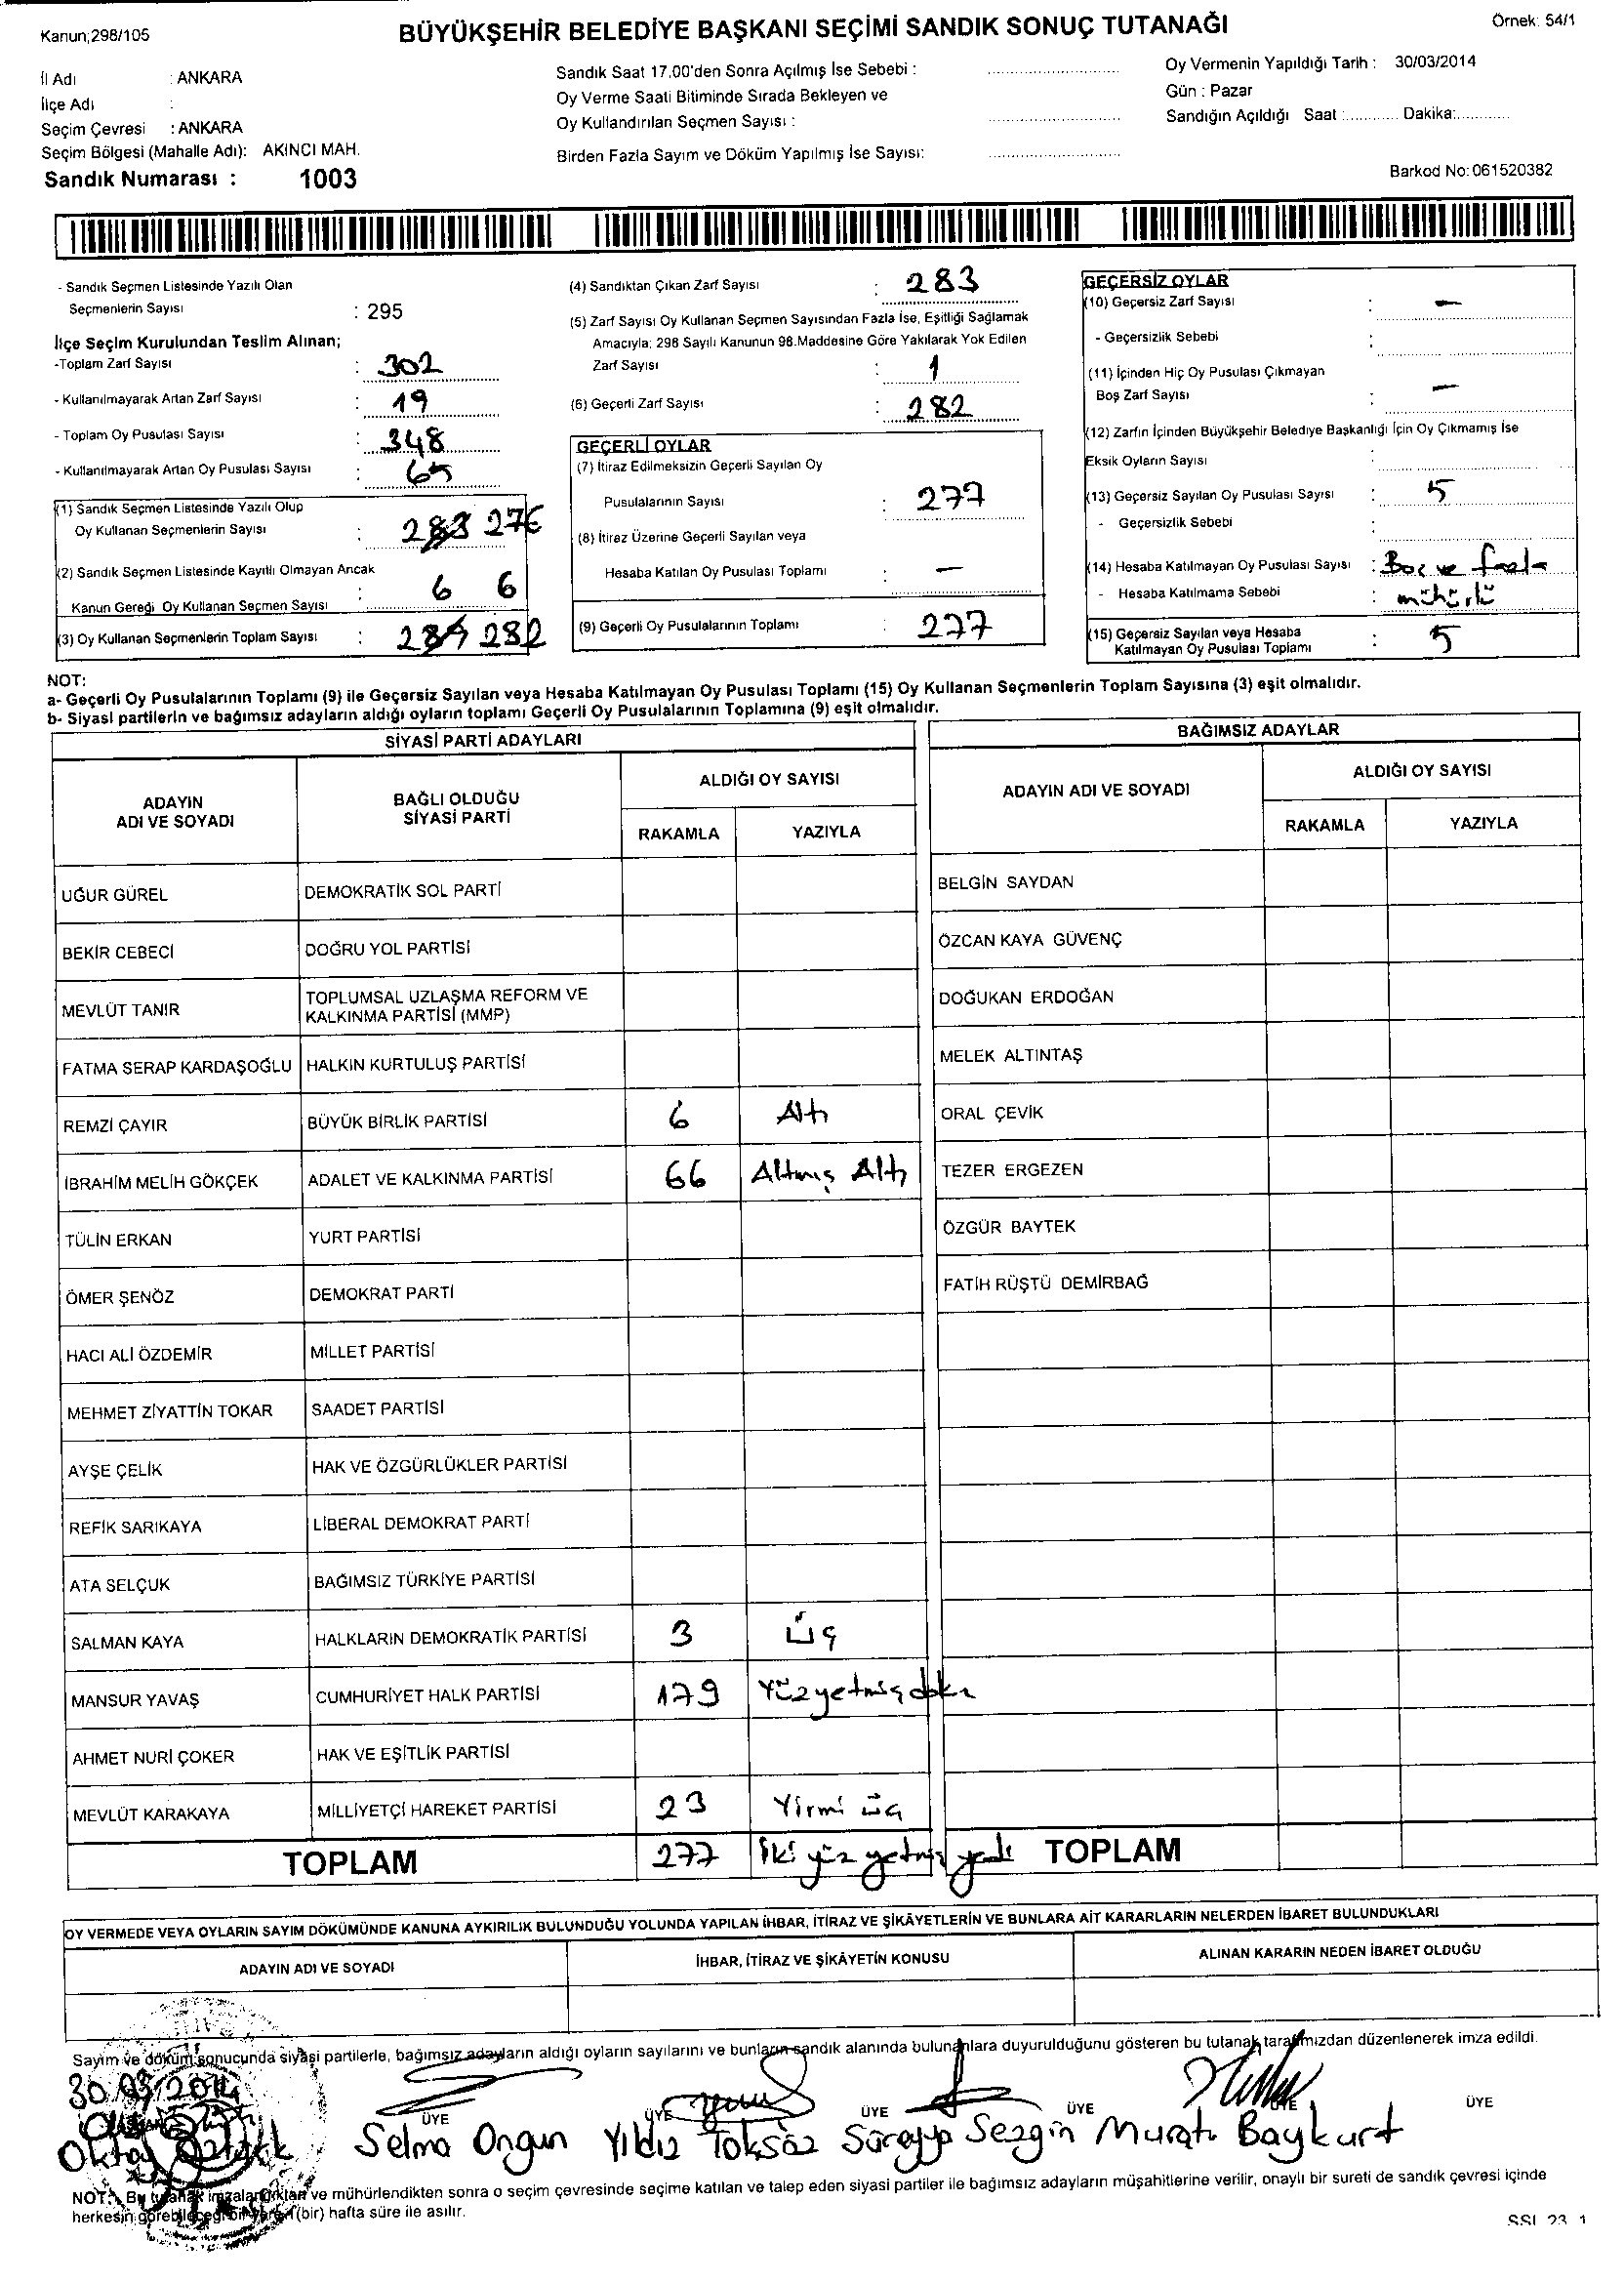 Kanun;298/105
BÜYÜKŞEHİR BELEDİYE BAŞKANI SEÇİMİ SANDIK SONUÇ TUTANAĞI
Örnek: 54/1
İl Adı : ANKARA
İlçe Adı :
Seçim Çevresi : ANKARA
Seçim Bölgesi (Mahalle Adı): AKINCI MAH.
Sandık Numarası : 1003
Sandık Saat 17.00'den Sonra Açılmış İse Sebebi :
Oy Verme Saati Bitiminde Sırada Bekleyen ve
Oy Kullandırılan Seçmen Sayısı :
Birden Fazla Sayım ve Döküm Yapılmış İse Sayısı:
Oy Vermenin Yapıldığı Tarih : 30/03/2014
Gün : Pazar
Sandığın Açıldığı Saat :............ Dakika:............
Barkod No: 061520382
- Sandık Seçmen Listesinde Yazılı Olan
Seçmenlerin Sayısı : 295
İlçe Seçim Kurulundan Teslim Alınan;
-Toplam Zarf Sayısı : 302
- Kullanılmayarak Artan Zarf Sayısı : 19
- Toplam Oy Pusulası Sayısı : 348
- Kullanılmayarak Artan Oy Pusulası Sayısı : 65
(1) Sandık Seçmen Listesinde Yazılı Olup
Oy Kullanan Seçmenlerin Sayısı : 283 276
(2) Sandık Seçmen Listesinde Kayıtlı Olmayan Ancak
Kanun Gereği Oy Kullanan Seçmen Sayısı : 6 6
(3) Oy Kullanan Seçmenlerin Toplam Sayısı : 289 282
(4) Sandıktan Çıkan Zarf Sayısı : 283
(5) Zarf Sayısı Oy Kullanan Seçmen Sayısından Fazla İse, Eşitliği Sağlamak
Amacıyla; 298 Sayılı Kanunun 98.Maddesine Göre Yakılarak Yok Edilen
Zarf Sayısı : 1
(6) Geçerli Zarf Sayısı : 282
GEÇERLİ OYLAR
(7) İtiraz Edilmeksizin Geçerli Sayılan Oy
Pusulalarının Sayısı : 277
(8) İtiraz Üzerine Geçerli Sayılan veya
Hesaba Katılan Oy Pusulası Toplamı : —
(9) Geçerli Oy Pusulalarının Toplamı : 277
GEÇERSİZ OYLAR
(10) Geçersiz Zarf Sayısı : —
- Geçersizlik Sebebi :
(11) İçinden Hiç Oy Pusulası Çıkmayan
Boş Zarf Sayısı : —
(12) Zarfın İçinden Büyükşehir Belediye Başkanlığı İçin Oy Çıkmamış İse
Eksik Oyların Sayısı :
(13) Geçersiz Sayılan Oy Pusulası Sayısı : 5
- Geçersizlik Sebebi :
(14) Hesaba Katılmayan Oy Pusulası Sayısı : Boş ve fazla
- Hesaba Katılmama Sebebi : mühürlü
(15) Geçersiz Sayılan veya Hesaba
Katılmayan Oy Pusulası Toplamı : 5
NOT:
a- Geçerli Oy Pusulalarının Toplamı (9) ile Geçersiz Sayılan veya Hesaba Katılmayan Oy Pusulası Toplamı (15) Oy Kullanan Seçmenlerin Toplam Sayısına (3) eşit olmalıdır.
b- Siyasi partilerin ve bağımsız adayların aldığı oyların toplamı Geçerli Oy Pusulalarının Toplamına (9) eşit olmalıdır.
SİYASİ PARTİ ADAYLARI
ADAYIN ADI VE SOYADI
BAĞLI OLDUĞU SİYASİ PARTİ
ALDIĞI OY SAYISI
RAKAMLA YAZIYLA
UĞUR GÜREL DEMOKRATİK SOL PARTİ
BEKİR CEBECİ DOĞRU YOL PARTİSİ
MEVLÜT TANIR TOPLUMSAL UZLAŞMA REFORM VE
KALKINMA PARTİSİ (MMP)
FATMA SERAP KARDAŞOĞLU HALKIN KURTULUŞ PARTİSİ
REMZİ ÇAYIR BÜYÜK BİRLİK PARTİSİ 6 Altı
İBRAHİM MELİH GÖKÇEK ADALET VE KALKINMA PARTİSİ 66 Altmış Altı
TÜLİN ERKAN YURT PARTİSİ
ÖMER ŞENÖZ DEMOKRAT PARTİ
HACI ALİ ÖZDEMİR MİLLET PARTİSİ
MEHMET ZİYATTİN TOKAR SAADET PARTİSİ
AYŞE ÇELİK HAK VE ÖZGÜRLÜKLER PARTİSİ
REFİK SARIKAYA LİBERAL DEMOKRAT PARTİ
ATA SELÇUK BAĞIMSIZ TÜRKİYE PARTİSİ
SALMAN KAYA HALKLARIN DEMOKRATİK PARTİSİ 3 Üç
MANSUR YAVAŞ CUMHURİYET HALK PARTİSİ 179 Yüzyetmişdokz
AHMET NURİ ÇOKER HAK VE EŞİTLİK PARTİSİ
MEVLÜT KARAKAYA MİLLİYETÇİ HAREKET PARTİSİ 23 Yirmi üç
TOPLAM 277 İki yüz yetmiş yedi
BAĞIMSIZ ADAYLAR
ADAYIN ADI VE SOYADI
ALDIĞI OY SAYISI
RAKAMLA YAZIYLA
BELGİN SAYDAN
ÖZCAN KAYA GÜVENÇ
DOĞUKAN ERDOĞAN
MELEK ALTINTAŞ
ORAL ÇEVİK
TEZER ERGEZEN
ÖZGÜR BAYTEK
FATİH RÜŞTÜ DEMİRBAĞ
TOPLAM
OY VERMEDE VEYA OYLARIN SAYIM DÖKÜMÜNDE KANUNA AYKIRILIK BULUNDUĞU YOLUNDA YAPILAN İHBAR, İTİRAZ VE ŞİKÂYETLERİN VE BUNLARA AİT KARARLARIN NELERDEN İBARET BULUNDUKLARI
ADAYIN ADI VE SOYADI İHBAR, İTİRAZ VE ŞİKÂYETİN KONUSU ALINAN KARARIN NEDEN İBARET OLDUĞU
Sayım ve döküm sonucunda siyasi partilerle, bağımsız adayların aldığı oyların sayılarını ve bunların sandık alanında bulunanlara duyurulduğunu gösteren bu tutanak tarafımızdan düzenlenerek imza edildi.
30.03/2014
ÜYE ÜYE ÜYE ÜYE ÜYE ÜYE
Oktay Selma Ongun Yıldız Toksöz Süreyya Sezgin Murat Baykurt
NOT: Bu tutanak imzalandıktan ve mühürlendikten sonra o seçim çevresinde seçime katılan ve talep eden siyasi partiler ile bağımsız adayların müşahitlerine verilir, onaylı bir sureti de sandık çevresi içinde
herkesin görebileceği bir yere 1(bir) hafta süre ile asılır.
SSI_23_1